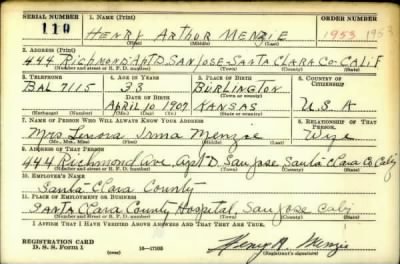 SERIAL NUMBER 1. NAME (Print) ORDER NUMBER
110 HENRY ARTHUR MENZIE 1953 1953
(First) (Middle) (Last)
2. ADDRESS (Print)
444 RICHMOND APT D SAN JOSE - SANTA CLARA CO - CALIF
(Number and street or R. F. D. number) (Town) (County) (State)
3. TELEPHONE 4. AGE IN YEARS 5. PLACE OF BIRTH 6. COUNTRY OF CITIZENSHIP
BAL 7115 33 BURLINGTON
DATE OF BIRTH (Town or county)
APRIL 10 1907 KANSAS U.S.A
(Exchange) (Number) (Mo.) (Day) (Yr.) (State or country)
7. NAME OF PERSON WHO WILL ALWAYS KNOW YOUR ADDRESS 8. RELATIONSHIP OF THAT PERSON
Mrs Lenora Irma Menzie Wife
(Mr., Mrs., Miss) (First) (Middle) (Last)
9. ADDRESS OF THAT PERSON
444 Richmond Ave Apt D San Jose Santa Clara Co Calif
(Number and street or R. F. D. number) (Town) (County) (State)
10. EMPLOYER'S NAME
Santa Clara County
11. PLACE OF EMPLOYMENT OR BUSINESS
Santa Clara County Hospital San Jose Calif
(Number and street or R. F. D. number) (Town) (County) (State)
I AFFIRM THAT I HAVE VERIFIED ABOVE ANSWERS AND THAT THEY ARE TRUE.
REGISTRATION CARD
D. S. S. Form 1 16-17105 Henry A. Menzie
(Registrant's signature)